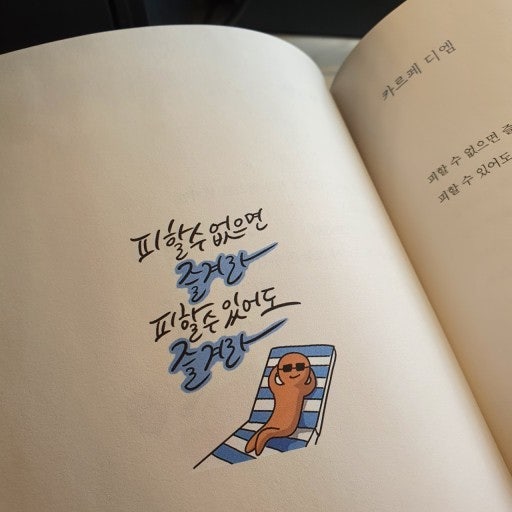 피할 수 없으면
즐겨라
피할 수 있어도
즐겨라
카르페 디엠
피할 수 없으면 즐
피할 수 있어도